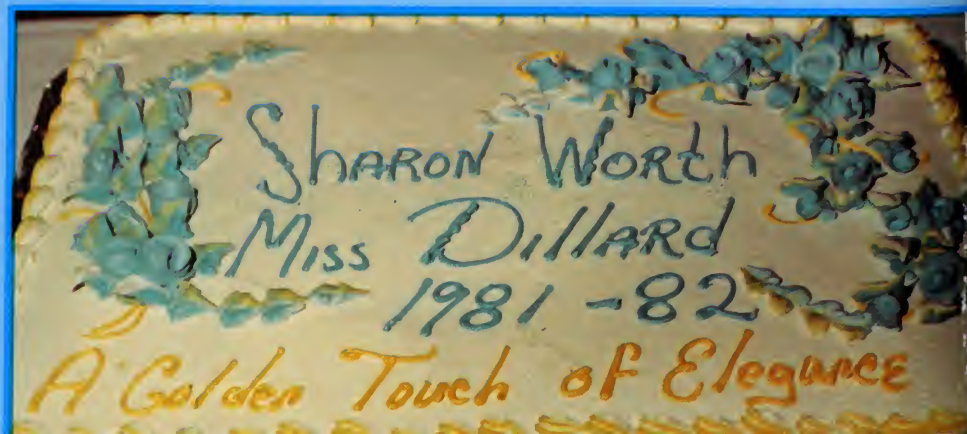 Sharon Worth
Miss Dillard
1981-82
A Golden Touch of Elegance